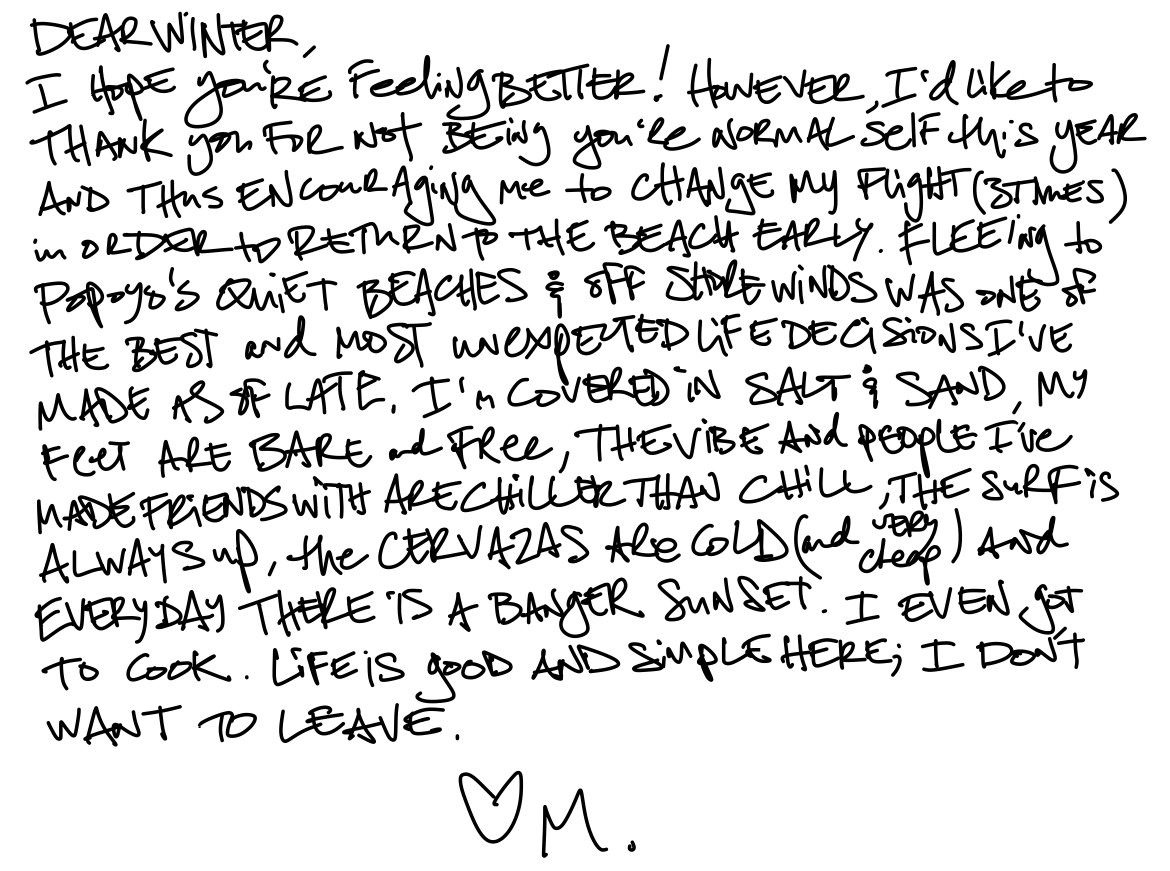 DEAR WINTER,
I HOPE you'RE Feeling BETTER! HOWEVER, I'd like to
THANK you FOR NOT BEing you're NORMAL SelF this YEAR
AND THUS ENCOURAging me to CHANGE MY Flight (3TIMES)
in ORDER to RETURN TO THE BEACH EARLY. FLEEing to
Popoyo's QUIET BEACHES & OFF SHORE WINDS WAS ONE OF
THE BEST and MOST unexpECTED LIFE DECISIONS I'VE
MADE AS OF LATE. I'm COVERED IN SALT & SAND, MY
FEET ARE BARE and FRee, THE VIBE And PEOPLE I've
MADE FRIENDS WITH ARE CHILLER THAN CHILL, THE SURF IS
ALWAYS up, the CERVAZAS ARe COLD (and VERY cheap) And
EVERYDAY THERE IS A BANGER SUNSET. I EVEN got
TO COOK. LIFE IS gOOD AND SIMPLE HERE; I DON'T
WANT TO LEAVE.
♡ M.